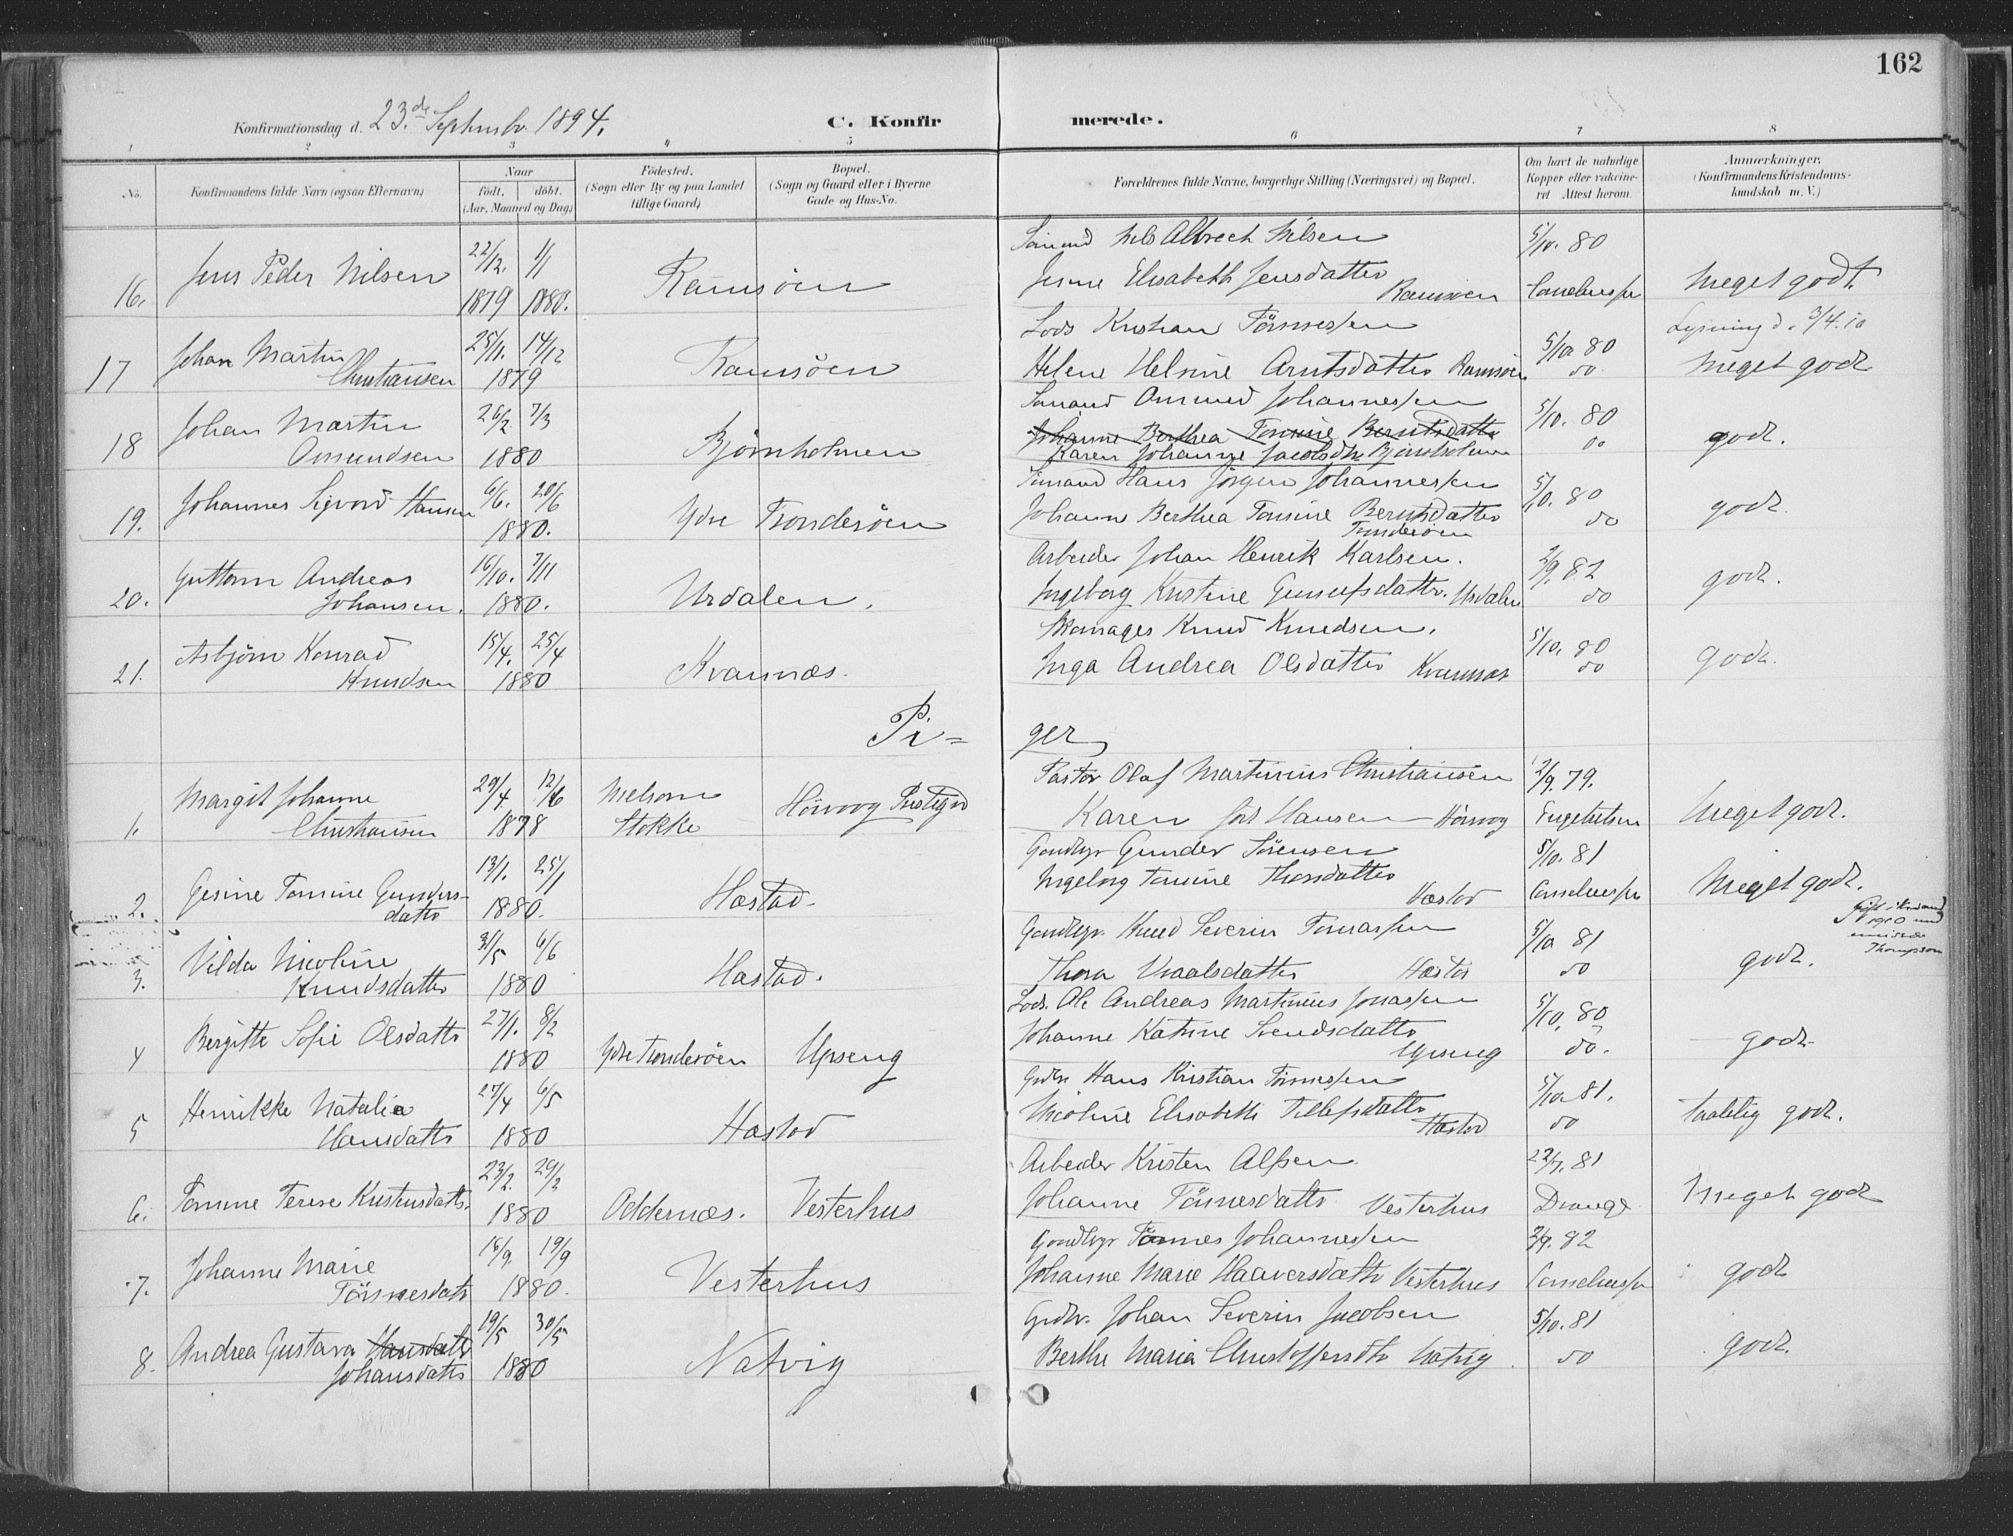 162
Konfirmationsdag d. 23.de Septembr. 1894.
C. Konfir merede.
1 2 3 4 5 6 7 8
No.
Konfirmandens fulde Navn (ogsaa Efternavn)
Naar
født. døbt.
(Aar, Maaned og Dag)
Fødested.
(Sogn eller By og paa Landet
tillige Gaard)
Bopæl.
(Sogn og Gaard eller i Byerne
Gade og Hus-No.
Forældrenes fulde Navne, borgerlige Stilling (Næringsvei) og Bopæl.
Om havt de naturlige
Kopper eller vakcine-
ret Attest herom.
Anmærkninger.
(Konfirmandens Kristendoms-
kundskab m. V.)
16. Jens Peder Nilsen 22/12. 1879 1/1 1880. Ramsøen
Nels Albrech Nilsen
Jesine Elisabeth Jensdatter Ramsøen
5/10. 80
Meget godt.
17 Johan Martin Christiansen 25/11. 14/12 1879 Ramsøen
Lods Kristian Tønnessen
Helene Helvine Arntsdatter Ramsøen
5/10 80 do.
Lysning d. 3/4.10
Meget godt
18 Johan Martin Omundsen 26/2 7/3 1880 Bjørnholmen
Ommund Johannessen
Johanne Berthea Tomine Berntsdatter
Karen Johanne Jacobsdtr Bjørnholmen
5/10. 80 do
godt.
19. Johannes Sigvord Hansen 6/6. 20/6 1880. Ydre Tronderøen
Hans Jørgen Johannessen
Johanne Berthea Tomine Berntsdatter
Tronderøen
5/10. 80 do
godt.
20. Guttorm Andreas Johansen. 16/10. 7/11 1880. Urdalen.
Arbeider Johan Henrik Karlsen.
Ingeborg Kristine Gunufsdatter. Urdalen
2/9. 82 do
godt.
21. Asbjørn Konrad Knudsen 15/4. 25/4 1880 Kvannæs.
Skomager Knud Knudsen.
Inga Andrea Olsdatter Kvannæs
5/10. 80 do
godt.
Pi= ger
1. Margit Johanne Christiansen 29/4. 12/6 1878 Stokke
Pastor Olaf Martinius Christiansen
Karen født Hansen
2/9. 79.
Engebretsen
Meget godt.
2. Gesine Tomine Gunders-
datter 13/1. 25/1 1880. Hæstad.
Gaardbgr Gunder Sørensen
Ingeborg Tomine Thorsdatter
Hæstad
5/10. 81
Meget godt.
3. Vilda Nicoline Knudsdatter 31/5 6/6 1880 Hæstad.
Gaardbgr. Knud Severin Tomassen
Thora Vraalsdatter Hæstad
5/10 81 do
godt.
1910
Thompson
4 Bergitte Sofie Olsdatter 27/1. 8/2 1880 Ydre Tronderøen Upseng
Lods. Ole Andreas Martinius Jonassen
Johanne Katrine Svendsdatter
Upseng
5/10. 80 do.
godt
5 Henrikke Natalia Hansdatter 27/4 6/5 1880 Hæstad
Gdbr Hans Kristian Tønnessen
Nicoline Elisabeth Tellefsdatter
Hæstad
5/10 81. do
taalelig godt.
6. Tomine Terese Kristensdatter. 23/2. 29/2 1880 Oddernæs. Vesterhus
Arbeider Kristen Alfsen
Johanne Tønnesdatter Vesterhus
22/7. 81
Drange
Meget godt
7. Johanne Marie Tønnesdatter 16/9. 19/9 1880. Vesterhus
Gaardbgr Tønnes Johannessen
Johanne Marie Haaversdatter Vesterhus
2/9. 82
godt
8. Andrea Gustava Hansdatter
Johansdatter 19/5 30/5 1880 Natvig
Gdbr. Johan Severin Jacobsen
Berthe Maria Christoffersdtr Natvig
5/10. 81 do
godt.